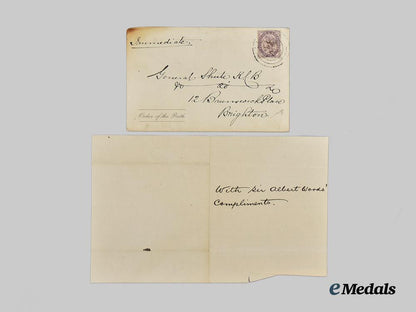 Immediate
General Shute K.C.B
&c &c &c
12 Brunswick Place
Brighton
Order of the Bath
With Sir Albert Woods'
Compliments.
eMedals